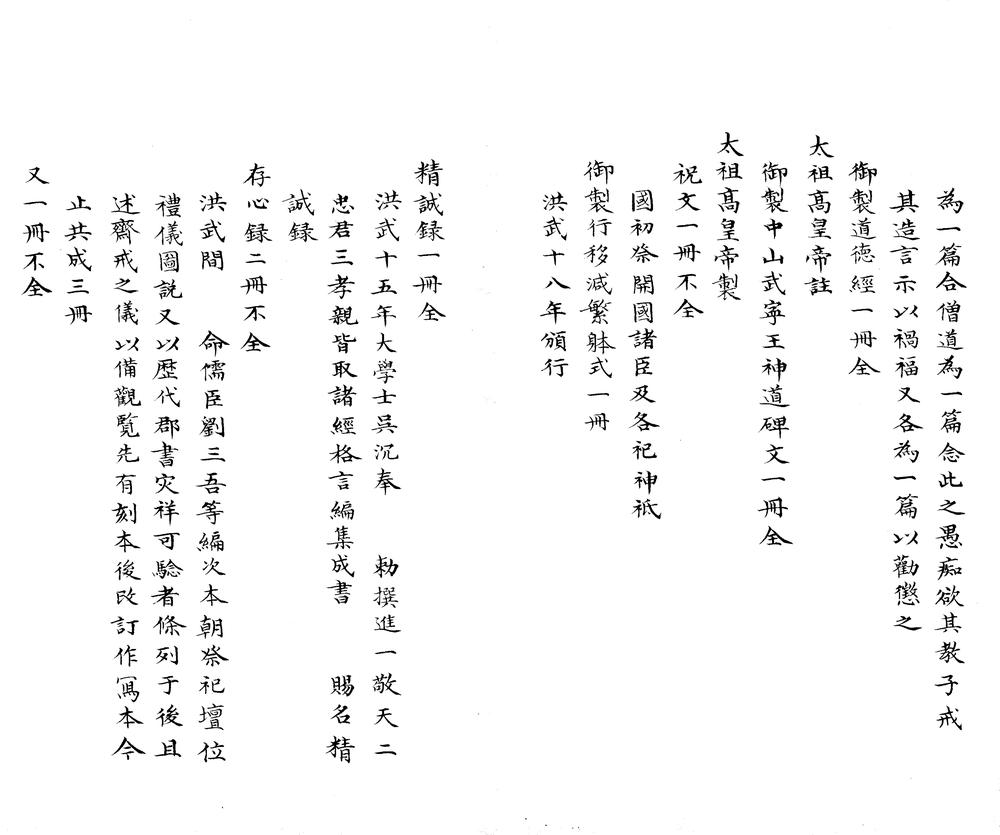 為一篇合僧道為一篇念此之愚痴欲其教子戒
其造言示以禍福又各為一篇以勸懲之
御製道德經一冊全
太祖髙皇帝註
御製中山武寜王神道碑文一冊全
太祖髙皇帝製
祝文一冊不全
國初祭開國諸臣及各祀神祇
御製行移減繁躰式一冊
洪武十八年頒行
精誠録一冊全
洪武十五年大學士吳沉奉　勅撰進一敬天二
忠君三孝親皆取諸經格言編集成書　賜名精
誠録
存心録二冊不全
洪武間　命儒臣劉三吾等編次本朝祭祀壇位
禮儀圖説又以歴代郡書灾祥可驗者條列于後且
述齋戒之儀以備觀覧先有刻本後改訂作冩本今
止共成三冊
又一冊不全